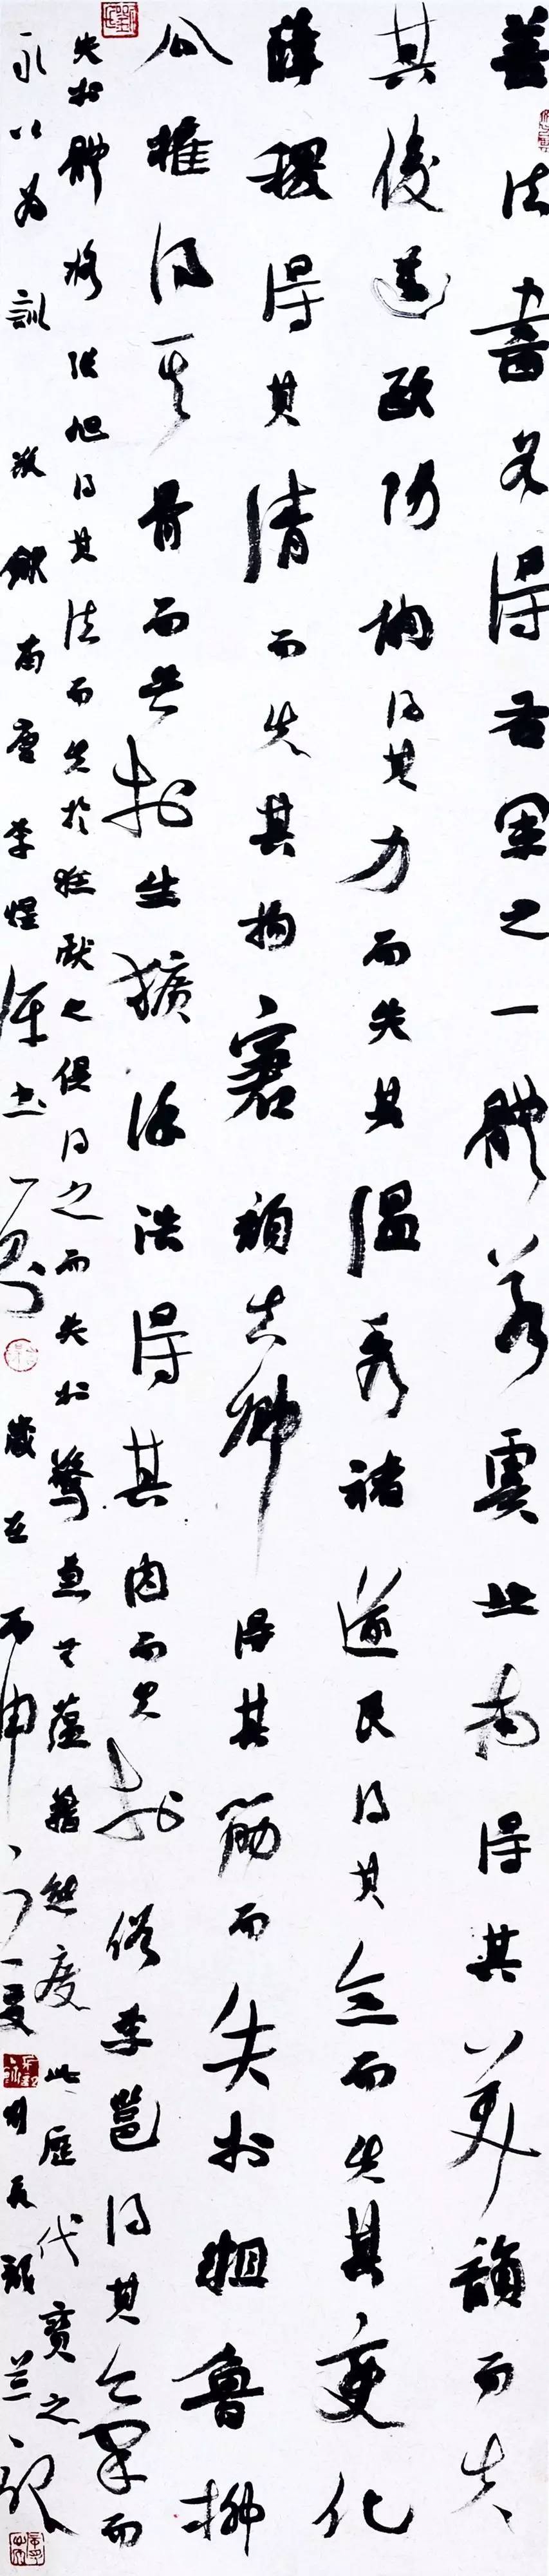 善法書各得右軍之一體若虞世南得其美韻而失
其俊邁歐陽詢得其力而失其溫秀褚遂良得其意而失其變化
薛稷得其清而失其拘窘顏真卿得其筋而失於粗魯柳
公權得其骨而失於生獷徐浩得其肉而失於俗李邕得其氣而
失於體格張旭得其法而失於狂獻之俱得之而失於驚急無蘊藉態度此歷代寶之
永以為訓 錄南唐李煜評書一 歲在丙申之夏